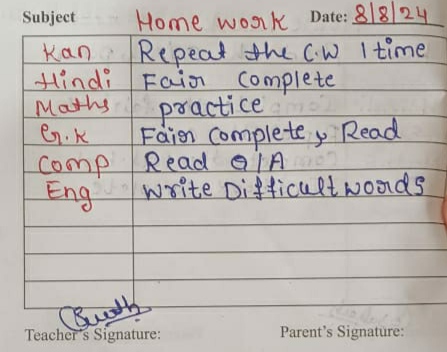 Subject Home work Date: 8/8/24
Kan Repeat the C.W 1 time
Hindi Fair Complete
Maths practice
G.K Fair Complete, Read
Comp Read Q/A
Eng Write Difficult words
Teacher's Signature: Parent's Signature: